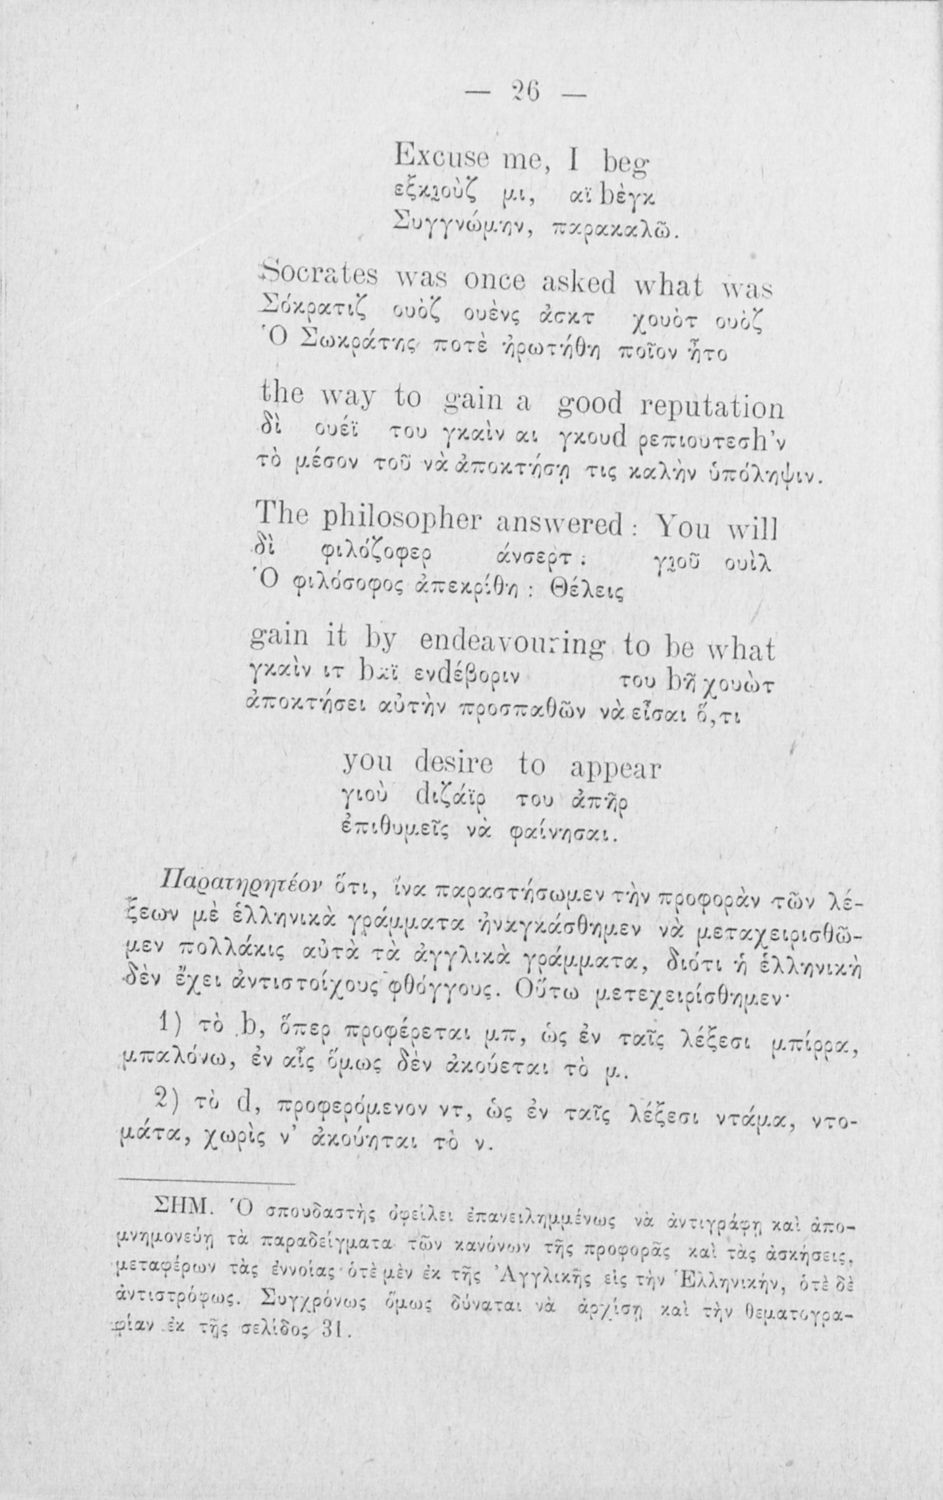 — 26 —
Excuse me, I beg
εξκιουζ μι, αϊ bὲγκ
Συγγνώμην, παρακαλῶ.
Socrates was once asked what was
Σόκρατιζ ουὸζ ουὲνς ἀσκτ χουὸτ ουὸζ
Ὁ Σωκράτης ποτὲ ἠρωτήθη ποῖον ἦτο
the way to gain a good reputation
δὶ ουέϊ του γκαὶν αι γκουd ρεπιουτεσh'ν
τὸ μέσον τοῦ νὰ ἀποκτήσῃ τις καλὴν ὑπόληψιν.
The philosopher answered : You will
δὶ φιλόζοφερ άνσερτ : γιοῦ ουὶλ
Ὁ φιλόσοφος ἀπεκρίθη : Θέλεις
gain it by endeavouring to be what
γκαὶν ιτ bαϊ ενdέβοριν του bῆ χουὼτ
ἀποκτήσει αὐτὴν προσπαθῶν νὰ εἶσαι ὅ,τι
you desire to appear
γιοὺ dιζάϊρ του ἀπῆρ
ἐπιθυμεῖς νὰ φαίνησαι.
Παρατηρητέον ὅτι, ἵνα παραστήσωμεν τὴν προφορὰν τῶν λέ-
ξεων μὲ ἑλληνικὰ γράμματα ἠναγκάσθημεν νὰ μεταχειρισθῶ-
μεν πολλάκις αὐτὰ τὰ ἀγγλικὰ γράμματα, διότι ἡ ἑλληνικὴ
δὲν ἔχει ἀντιστοίχους φθόγγους. Οὕτω μετεχειρίσθημεν·
1) τὸ b, ὅπερ προφέρεται μπ, ὡς ἐν ταῖς λέξεσι μπίρρα,
μπαλόνω, ἐν αἷς ὅμως δὲν ἀκούεται τὸ μ.
2) τὸ d, προφερόμενον ντ, ὡς ἐν ταῖς λέξεσι ντάμα, ντο-
μάτα, χωρὶς ν' ἀκούηται τὸ ν.
ΣΗΜ. Ὁ σπουδαστὴς ὀφείλει ἐπανειλημμένως νὰ ἀντιγράφῃ καὶ ἀπο-
μνημονεύῃ τὰ παραδείγματα τῶν κανόνων τῆς προφορᾶς καὶ τὰς ἀσκήσεις,
μεταφέρων τὰς ἐννοίας ὁτὲ μὲν ἐκ τῆς Ἀγγλικῆς εἰς τὴν Ἑλληνικήν, ὁτὲ δὲ
ἀντιστρόφως. Συγχρόνως ὅμως δύναται νὰ ἀρχίσῃ καὶ τὴν θεματογρα-
φίαν ἐκ τῆς σελίδος 31.